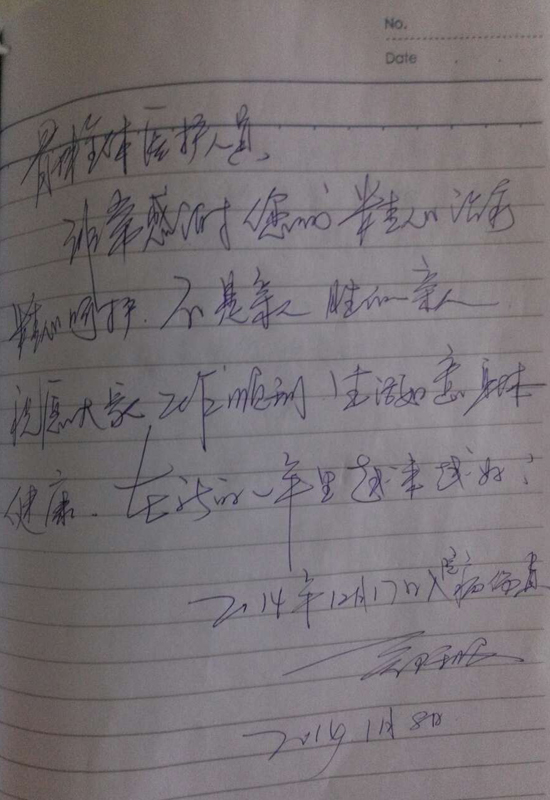 No.
Date
骨科全体医护人员、
非常感谢您们精心的治病
精心呵护.不是亲人胜似亲人.
祝愿大家工作顺利 生活如意 身体
健康.在新的一年里越来越好!
2014年12月17日入院病伤员